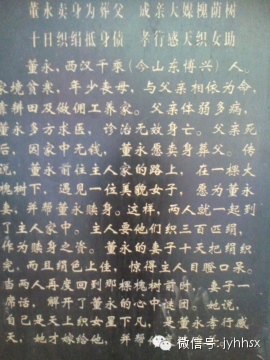 董永卖身为葬父 成亲大媒槐荫树
十日织绢抵身债 孝行感天织女助
董永,西汉千乘(今山东博兴)人。
家境贫寒,年少丧母,与父亲相依为命,
靠耕田及做佣工养家。父亲体弱多病,
董永多方求医,诊治无效身亡。父亲死
后,因家中无钱,董永愿卖身葬父。传
说,董永前往主人家的路上,在一棵大
槐树下,遇见一位美貌女子,愿为董永
妻,并帮董永赎身。这样,两人就一起到
了主人家中。主人要他们织三百匹绢,
作为赎身之资。董永的妻子十天把绢织
完,而且绢色上佳,惊得主人目瞪口呆。
当两人再度回到那棵槐树前时,妻子一
席话,解开了董永的心中谜团。她说,
自己是天上织女星下凡,是董永孝行感
天,她才嫁给他,并帮
微信号: jyhhsx